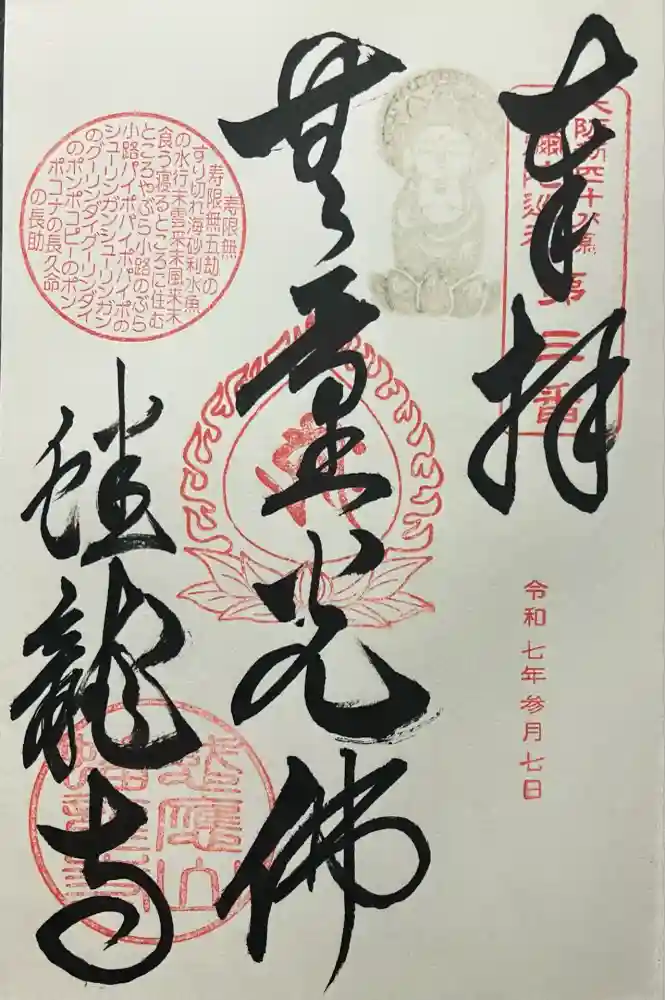 奉拝
大阪新四十八願
令和七年参月七日
無量光佛
寿限無
寿限無五劫の
すり切れ海砂利水魚
の水行末雲来末風来末
食う寝るところに住む
ところやぶら小路のぶら
小路パイポパイポパイポの
シューリンガンシューリンガン
のグーリンダイグーリンダイ
のポンポコピーのポン
ポコナの長久命
の長助
蟠龍寺